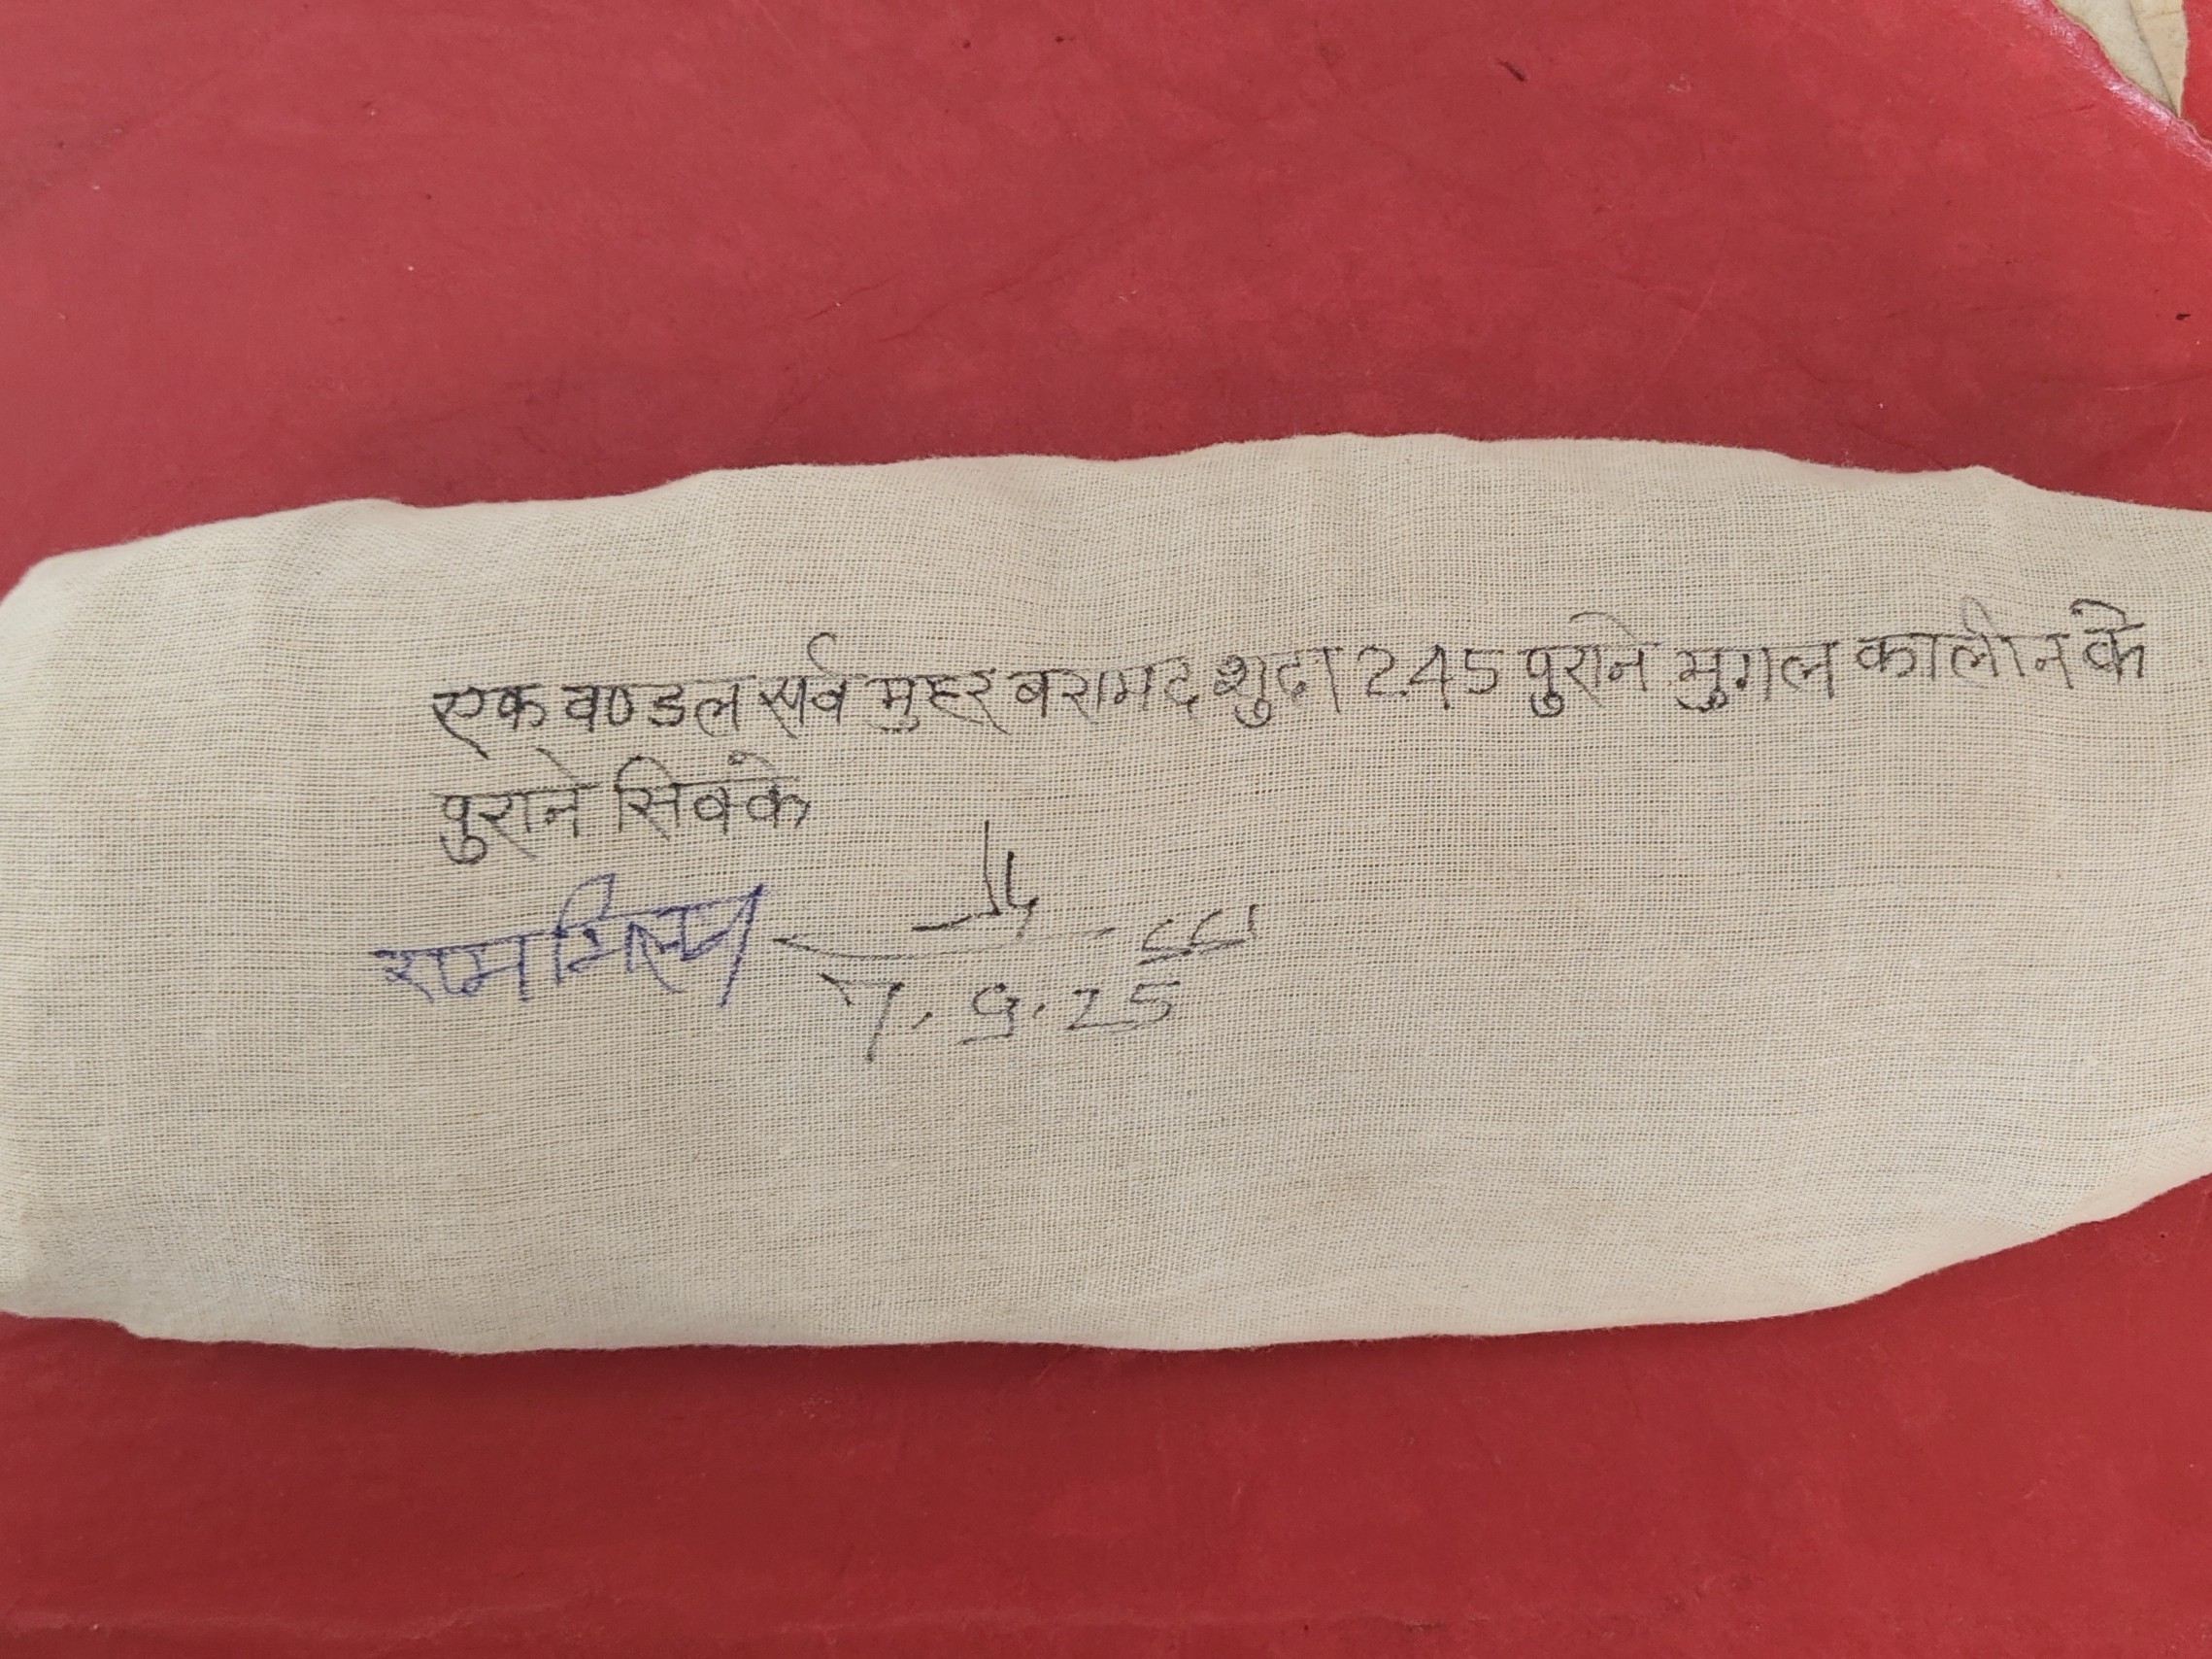 एक वण्डल सर्व मुहर बरामद शुदा 245 पुराने मुगल कालीन के
पुराने सिक्के
7.9.25